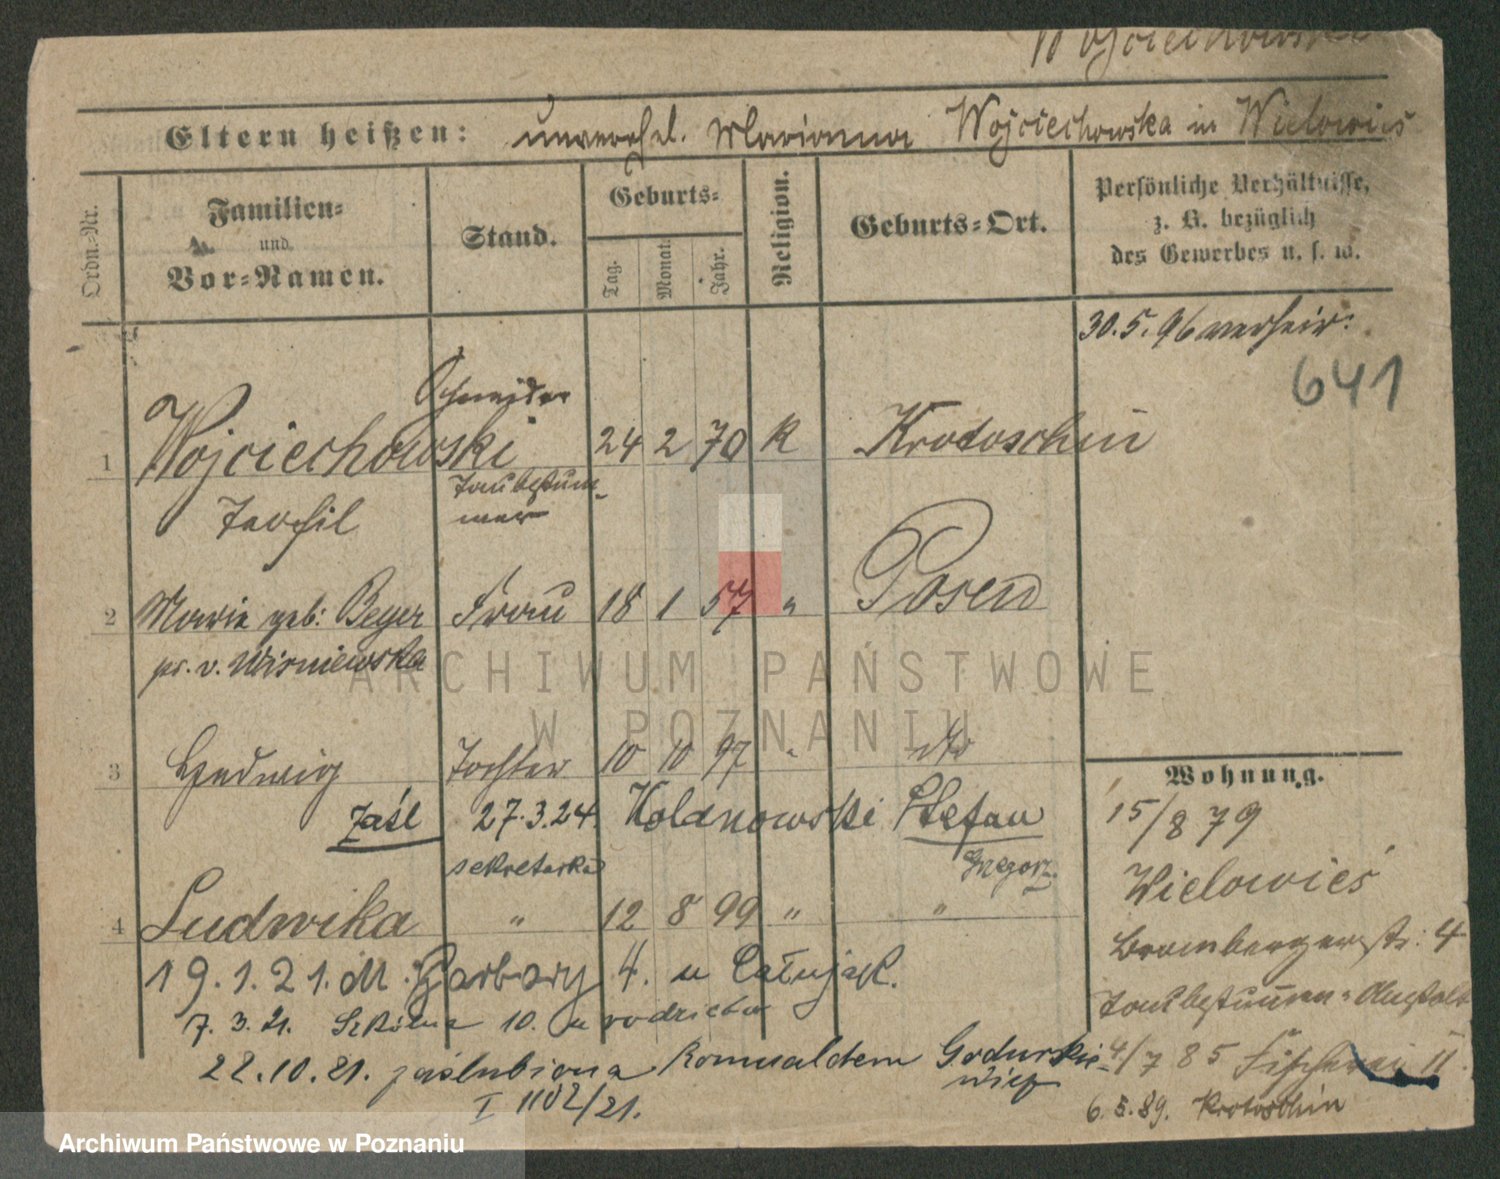 Wojciechowski
Eltern heißen: unverehel. Marianna Wojciechowska in Wielowies
Ordn.-Nr.
Familien-
und
Vor-Namen.
Stand.
Geburts-
Tag.
Monat.
Jahr.
Religion.
Geburts-Ort.
Persönliche Verhältnisse,
z. B. bezüglich
des Gewerbes u. s. w.
30.5.96 verheir:
641
Schneider
1 Wojciechowski 24 2 70 K Krotoschin
Taubstum-
mer
Teofil
2 Marie geb: Beyer Frau 18 1 57 " Posen
pr. v. Wisniewska
3 Hedwig Tochter 10 10 97 " dto
Zaśl 27.3.24. Koldnowski Stefan
sekretarka Grzegorz
4 Ludwika " 12 8 99 " "
19.1.21. M. Garbary 4. u
7.3.21. Szkolna 10. u rodziców
22.10.21. zaślubiona Romualdem Godurkie-
wicz
I 1102/21.
Wohnung.
15/8 79
Wielowieś
Brombergerstr: 4
Taubstummen-Anstalt
4/7 85 Fischerei 11.
6.5.89. Krotoschin
ARCHIWUM PAŃSTWOWE
W POZNANIU
Archiwum Państwowe w Poznaniu